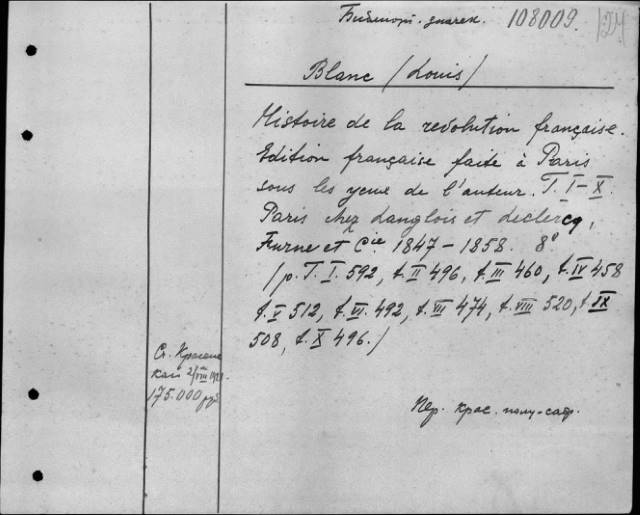 Библиогр. значен. 108009. 124
Blanc (Louis)
Histoire de la révolution française.
Edition française faite à Paris
sous les yeux de l'auteur. T. I–X.
Paris chez Langlois et Leclercq,
Furne et Cie. 1847–1858. 8º
(p. T. I. 592, t. II 496, t. III 460, t. IV 458
t. V 512, t. VI. 492, t. VII 474, t. VIII 520, t. IX
508, t. X 496.)
175.000 руб
Пер. крас. полу-саф.